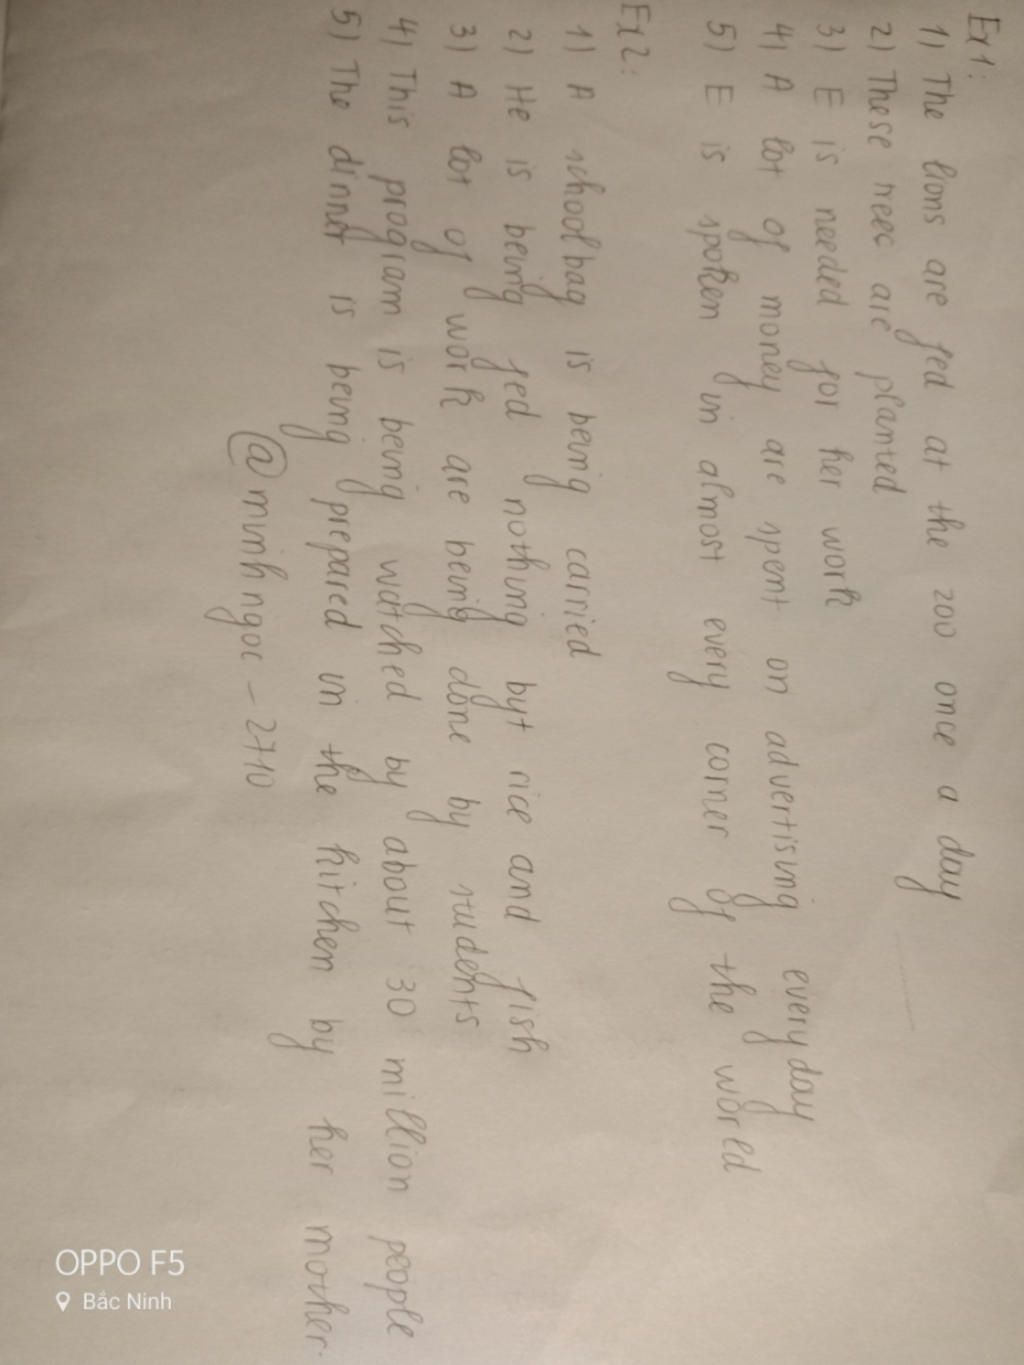 Ex1:
1) The lions are fed at the zoo once a day
2) These trees are planted
3) E is needed for her work
4) A lot of money are spent on advertising everyday
5) E is spoken in almost every corner of the world
Ex2:
1) A schoolbag is being carried
2) He is being fed nothing byt rice and fish
3) A lot of work are being done by students
4) This program is being watched by about 30 million people
5) The dinner is being prepared in the kitchen by her mother.
@minhngoc-2710
OPPO F5
Bắc Ninh